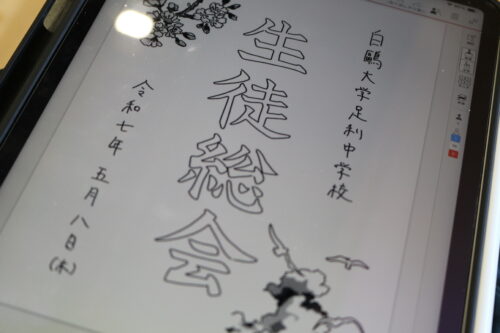 白鷗大学足利中学校
生徒総会
令和七年 五月八日(木)